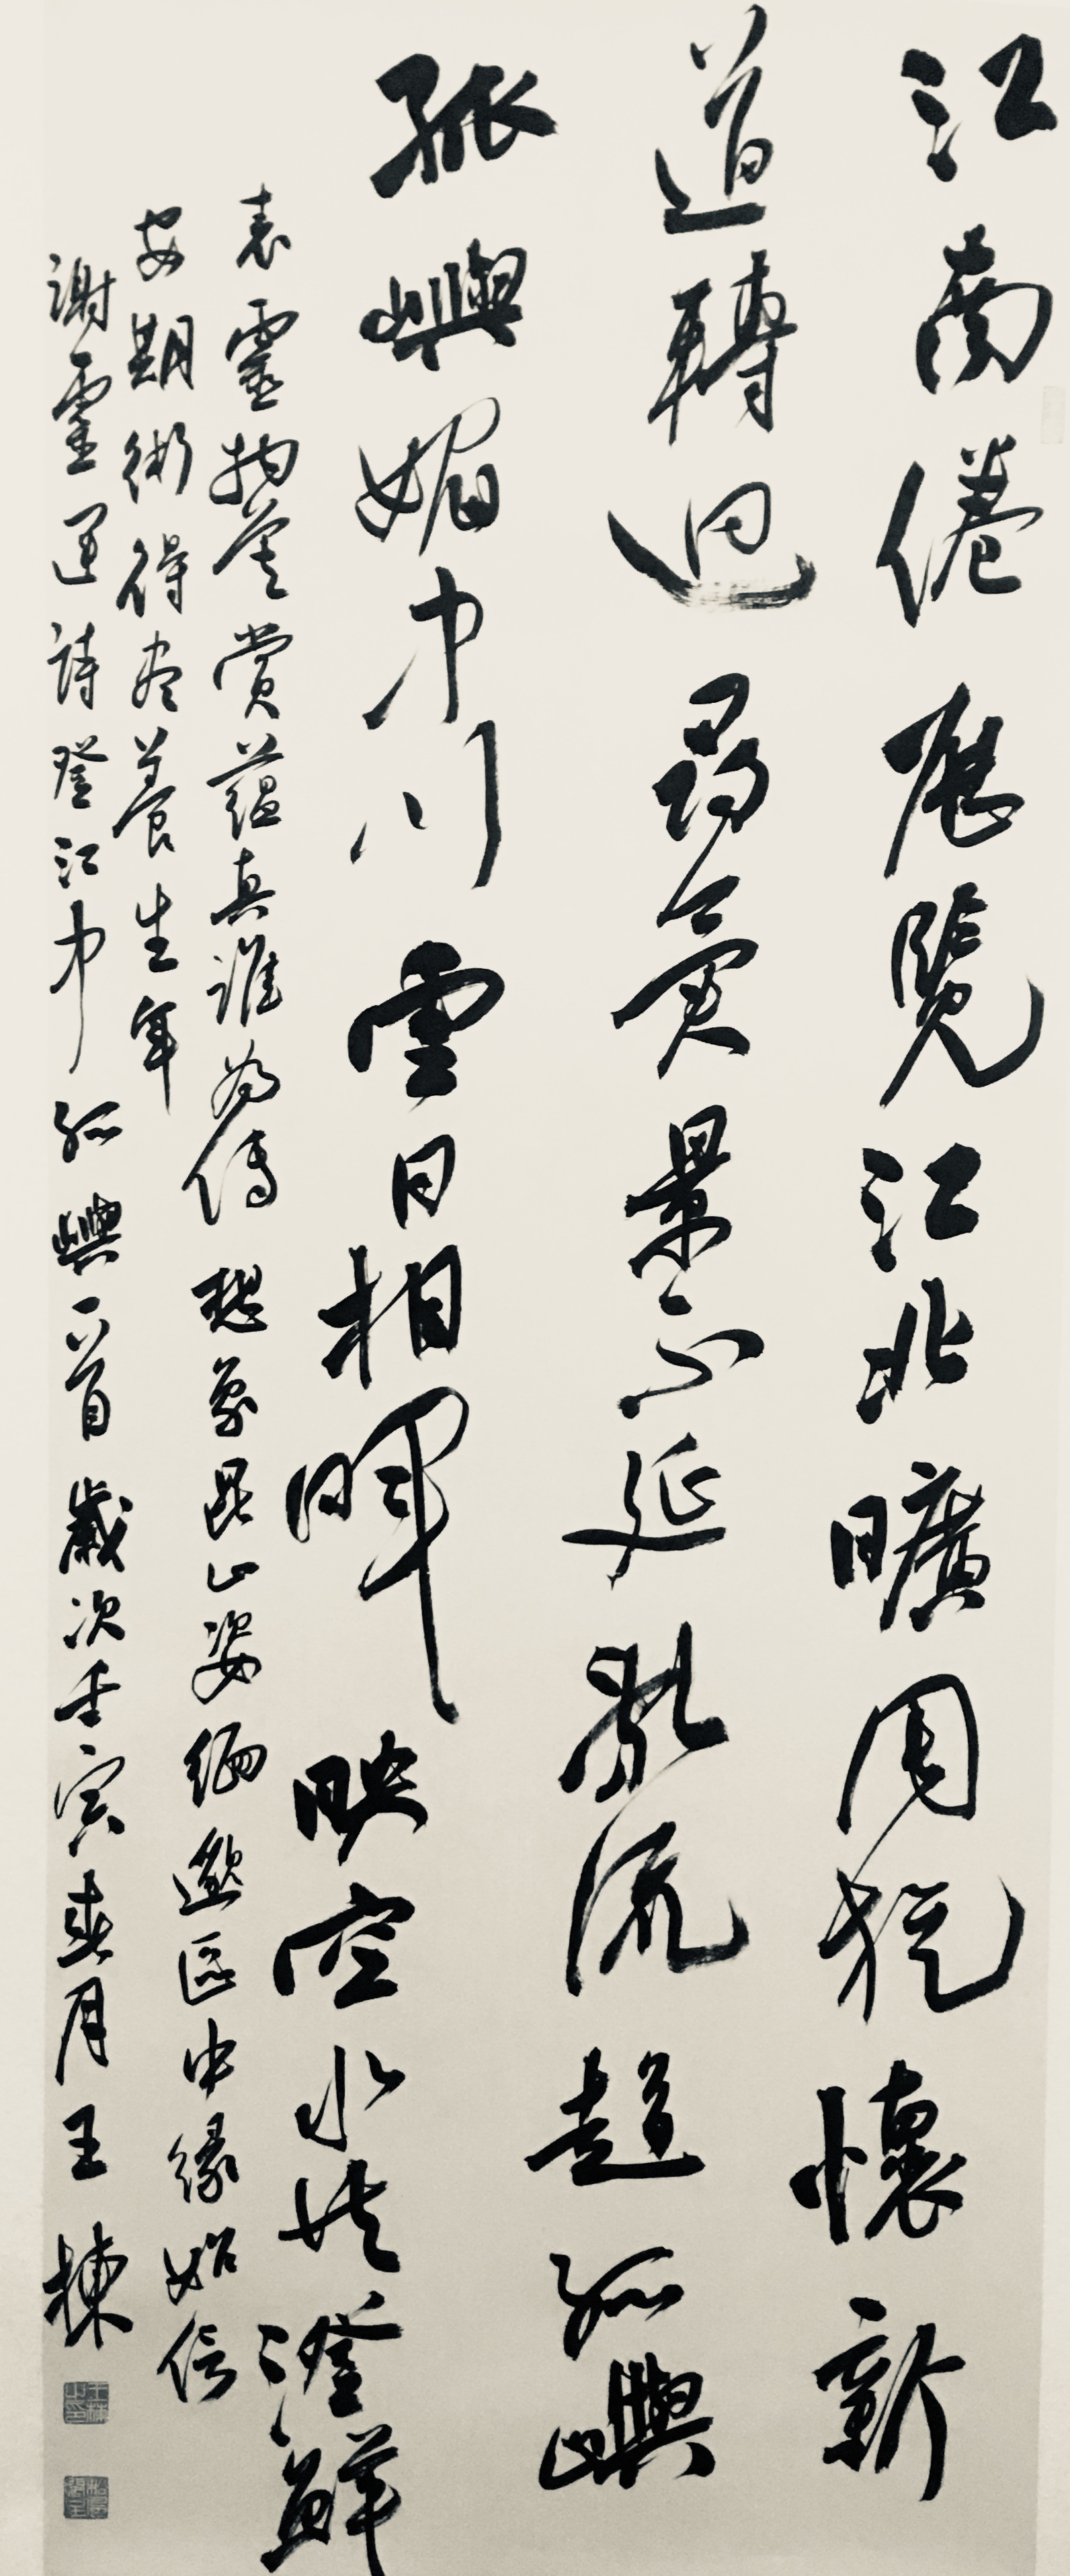 江南倦歷覽江北曠周旋懷新
道轉迴尋異景不延亂流趨孤嶼
孤嶼媚中川雲日相暉映空水共澄鮮
表靈物莫賞蘊真誰為傳想象崑山姿緬邈區中緣始信
安期術得盡養生年
謝靈運詩登江中孤嶼一首歲次壬寅春月王棟